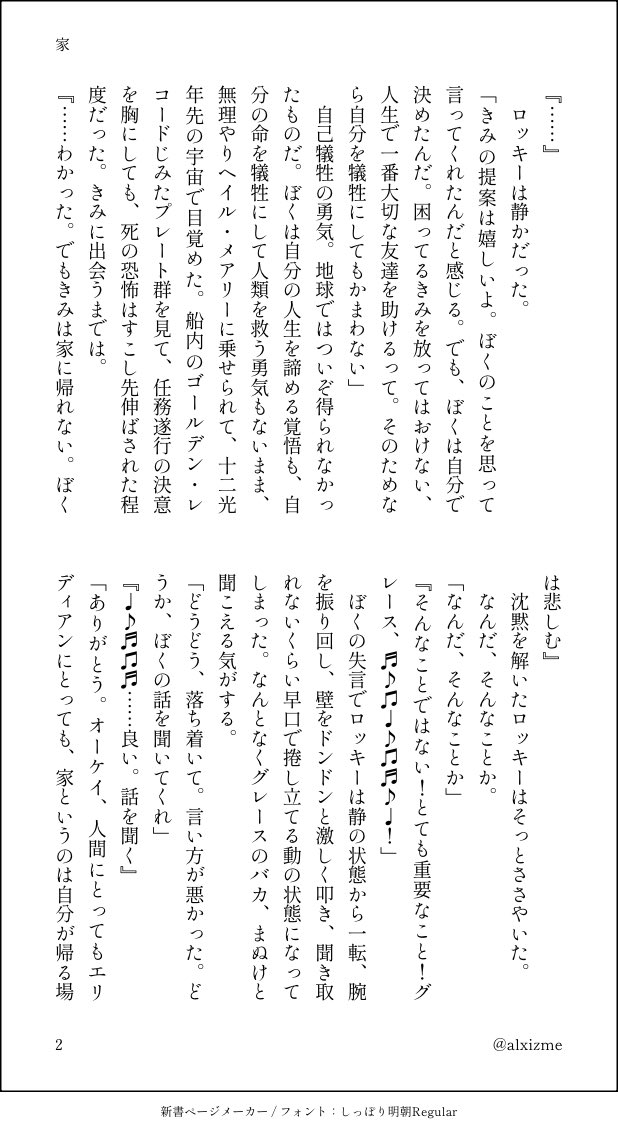 家
『……』
　ロッキーは静かだった。
「きみの提案は嬉しいよ。ぼくのことを思って
言ってくれたんだと感じる。でも、ぼくは自分で
決めたんだ。困ってるきみを放ってはおけない、
人生で一番大切な友達を助けるって。そのためな
ら自分を犠牲にしてもかまわない」
　自己犠牲の勇気。地球ではついぞ得られなかっ
たものだ。ぼくは自分の人生を諦める覚悟も、自
分の命を犠牲にして人類を救う勇気もないまま、
無理やりヘイル・メアリーに乗せられて、十二光
年先の宇宙で目覚めた。船内のゴールデン・レ
コードじみたプレート群を見て、任務遂行の決意
を胸にしても、死の恐怖はすこし先伸ばされた程
度だった。きみに出会うまでは。
『……わかった。でもきみは家に帰れない。ぼく
は悲しむ』
　沈黙を解いたロッキーはそっとささやいた。
　なんだ、そんなことか。
「なんだ、そんなことか」
『そんなことではない！とても重要なこと！グ
レース、♬♪♫♩♪♫♬♪♩！」
　ぼくの失言でロッキーは静の状態から一転、腕
を振り回し、壁をドンドンと激しく叩き、聞き取
れないくらい早口で捲し立てる動の状態になって
しまった。なんとなくグレースのバカ、まぬけと
聞こえる気がする。
「どうどう、落ち着いて。言い方が悪かった。ど
うか、ぼくの話を聞いてくれ」
『♩♪♬♫♬……良い。話を聞く』
「ありがとう。オーケイ、人間にとってもエリ
ディアンにとっても、家というのは自分が帰る場
2
@alxizme
新書ページメーカー / フォント：しっぽり明朝Regular